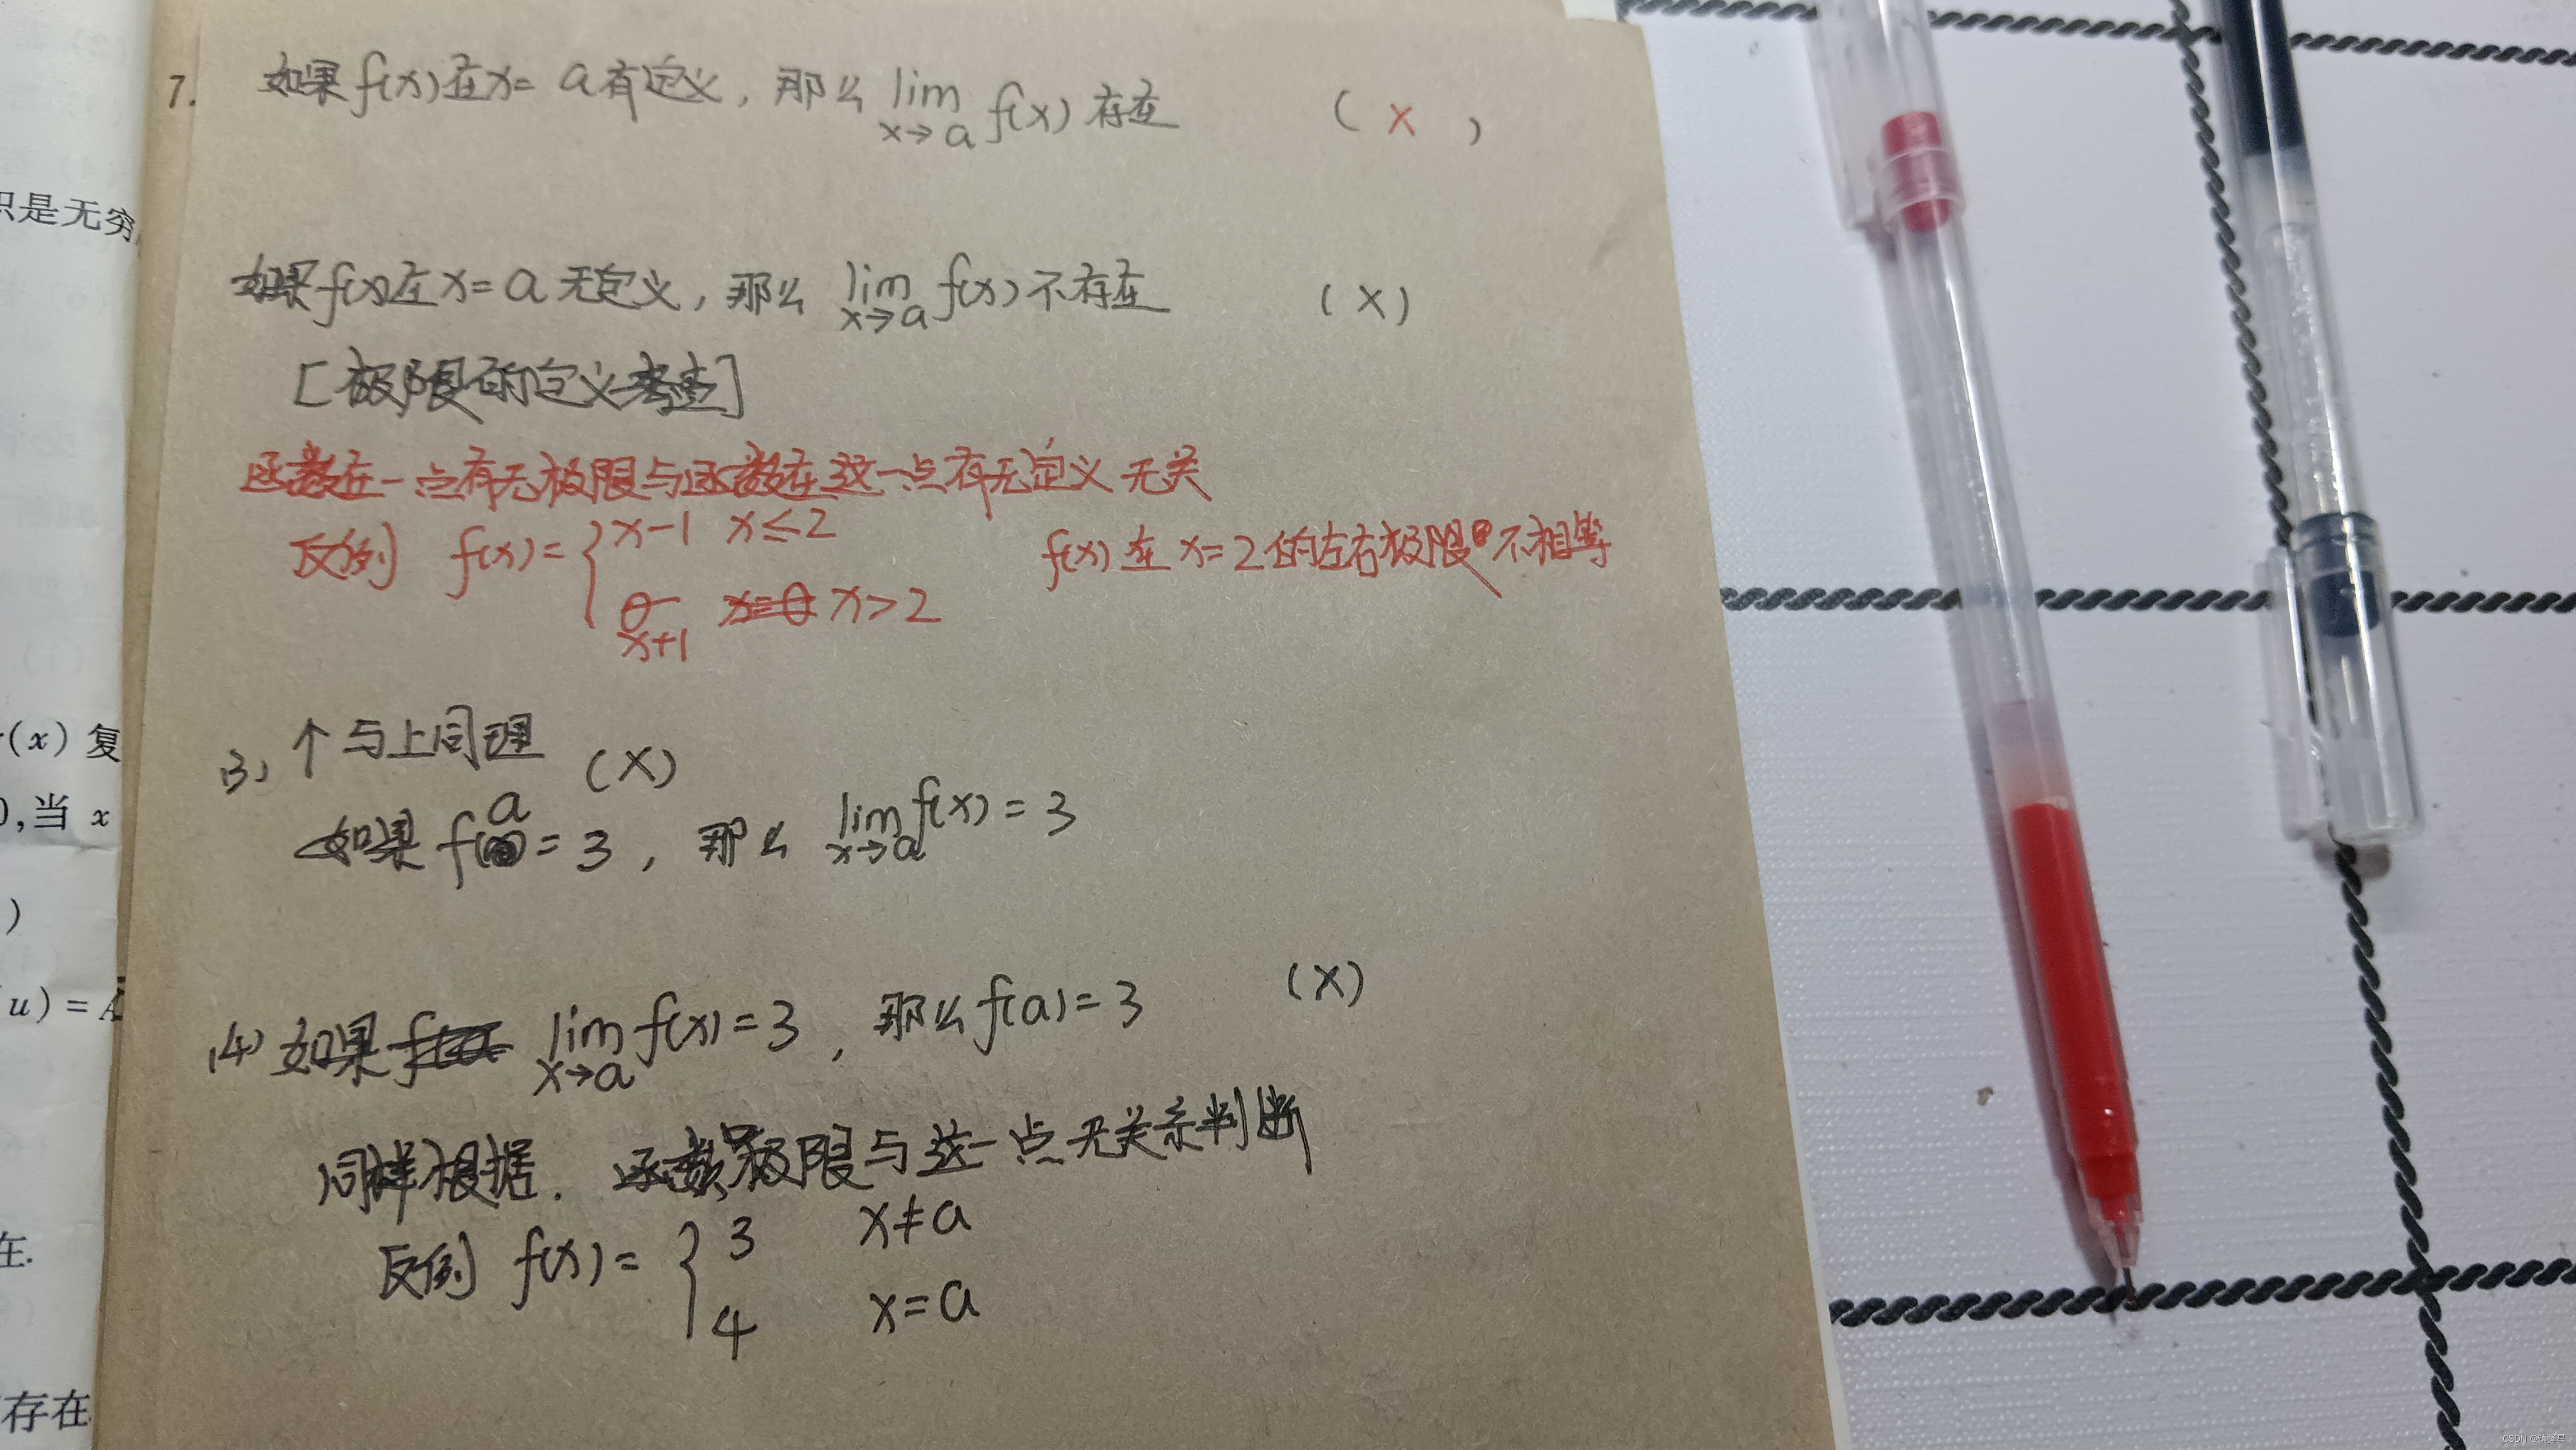 7. 如果f(x)在x=a有定义，那么 lim x→a f(x) 存在 ( × )
如果f(x)在x=a无定义，那么 lim x→a f(x) 不存在 (×)
[极限的定义考查]
函数在一点有无极限与函数在这一点有无定义无关
反例 f(x)= { x-1 x≤2
x+1 x>2
f(x)在x=2的左右极限不相等
(3) 个与上同理 (×)
如果f(a)=3，那么 lim x→a f(x)=3
(4) 如果 lim x→a f(x)=3，那么f(a)=3 (×)
同样根据．函数极限与这一点无关系判断
反例 f(x)= { 3 x≠a
4 x=a
只是无穷
(x) 复
),当 x
)
(u)=A
在.
存在